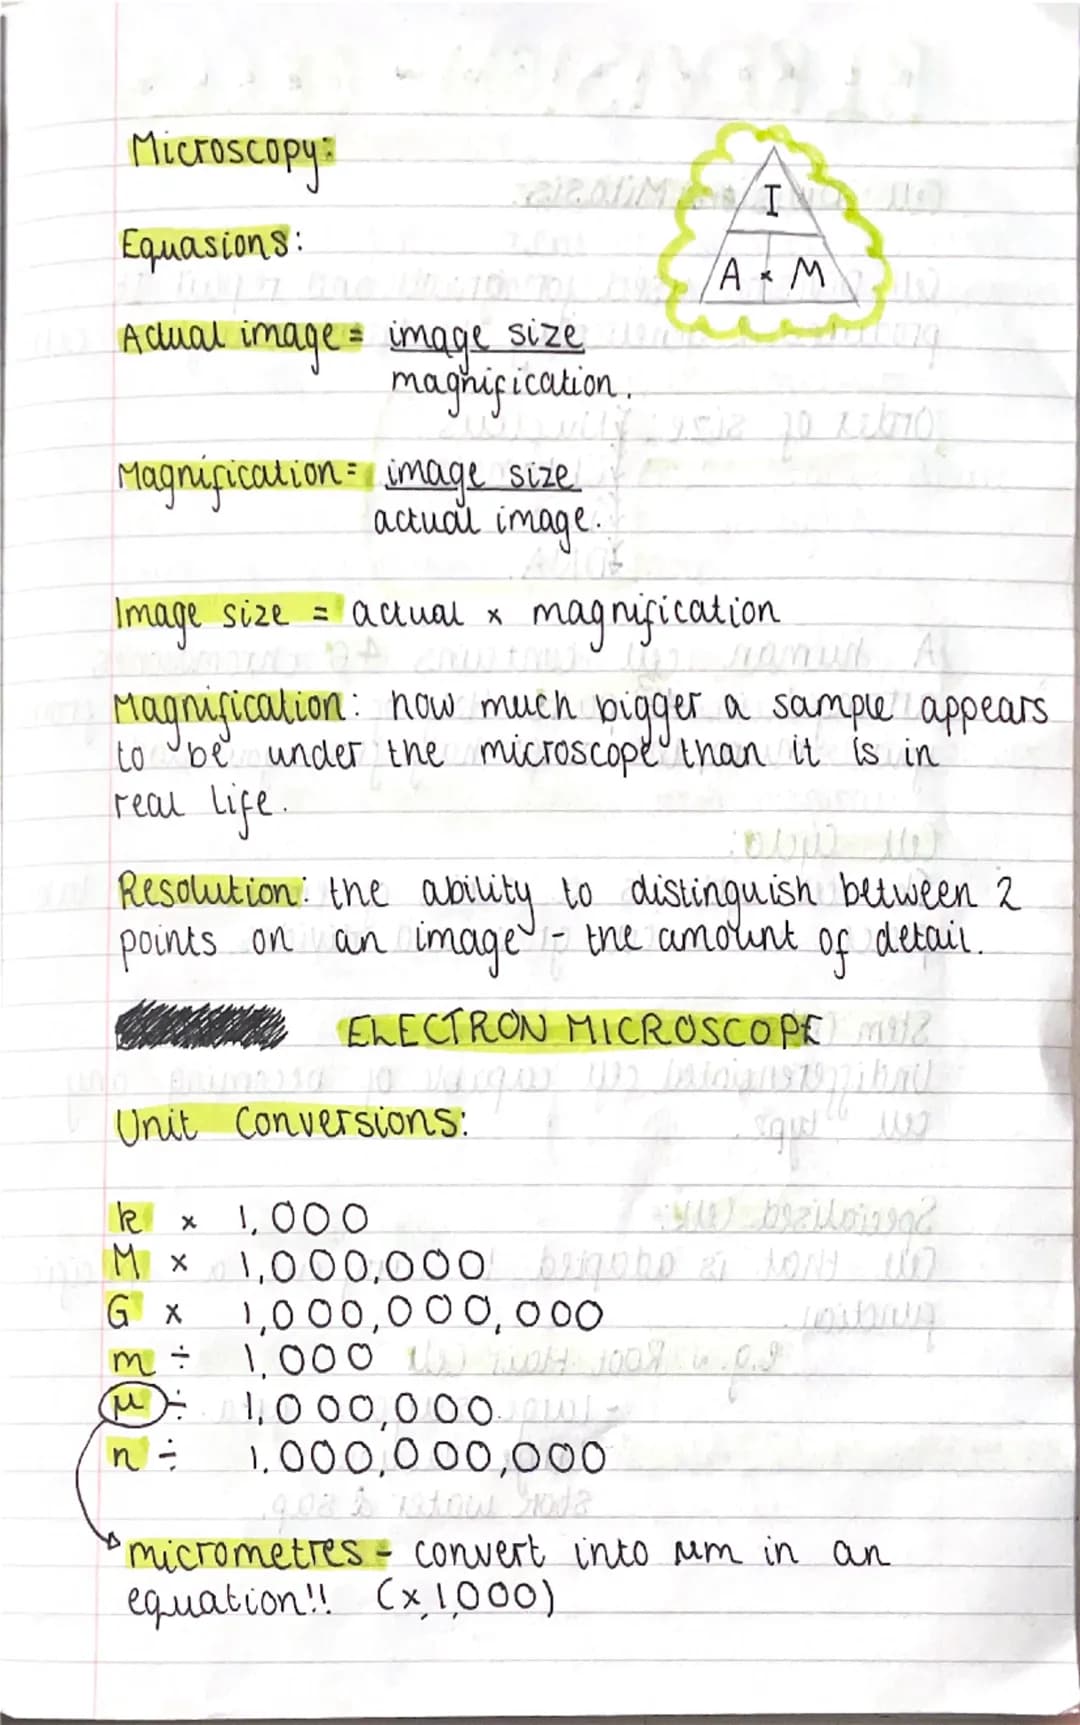 Microscopy:
I
A × M
Equasions:
Actual image = image size
magnification.
Magnification = image size
actual image.
Image size = actual × magnification
Magnification: how much bigger a sample appears
to be under the microscope than it is in
real life.
Resolution: the ability to distinguish between 2
points on an image - the amount of detail.
ELECTRON MICROSCOPE
Unit Conversions:
k × 1,000
M × 1,000,000
G × 1,000,000,000
m ÷ 1,000
μ ÷ 1,000,000
n ÷ 1,000,000,000
micrometres - convert into μm in an
equation!! (×1,000)